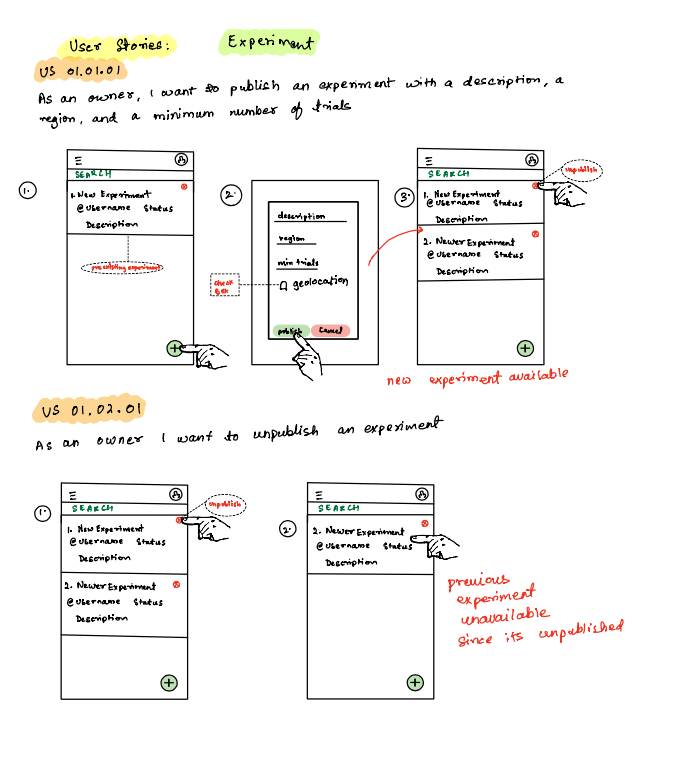 User Stories:
Experiment
US 01.01.01
As an owner, I want to publish an experiment with a description, a
region, and a minimum number of trials
1.
SEARCH
1. New Experiment
@Username Status
Description
pre existing experiment
2.
description
region
min trials
geolocation
check
box
publish
Cancel
3.
SEARCH
unpublish
1. New Experiment
@Username Status
Description
2. Newer Experiment
@Username Status
Description
new experiment available
US 01.02.01
As an owner I want to unpublish an experiment
1.
SEARCH
unpublish
1. New Experiment
@Username Status
Description
2. Newer Experiment
@Username Status
Description
2.
SEARCH
2. Newer Experiment
@Username Status
Description
previous
experiment
unavailable
since its unpublished